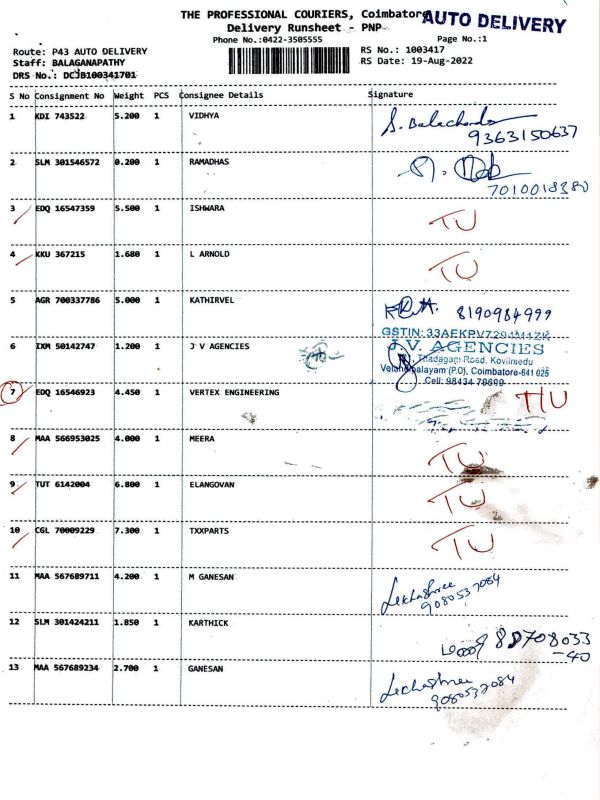 THE PROFESSIONAL COURIERS, Coimbatore
AUTO DELIVERY
Delivery Runsheet - PNP
Phone No.:0422-3505555 Page No.:1
Route: P43 AUTO DELIVERY RS No.: 1003417
Staff: BALAGANAPATHY RS Date: 19-Aug-2022
DRS No.: DCJB100341701
S No Consignment No Weight PCS Consignee Details Signature
1 KDI 743522 5.200 1 VIDHYA S. Balachandar
9363150637
2 SLM 301546572 0.200 1 RAMADHAS
7010018380
3 EDQ 16547359 5.500 1 ISHWARA TU
4 KKU 367215 1.680 1 L ARNOLD TU
5 AGR 700337786 5.000 1 KATHIRVEL 8190984999
GSTIN: 33AEKPV7294M1ZK
6 IXM 50142747 1.200 1 J V AGENCIES J.V. AGENCIES
Thadagam Road, Kovilmedu
Velandipalayam (P.O), Coimbatore-641 025
Cell: 98434 78609
7 EDQ 16546923 4.450 1 VERTEX ENGINEERING TU
8 MAA 566953025 4.000 1 MEERA TU
9 TUT 6142004 6.800 1 ELANGOVAN TU
10 CGL 70009229 7.300 1 TXXPARTS TU
11 MAA 567689711 4.200 1 M GANESAN Lekhashree
9080537084
12 SLM 301424211 1.850 1 KARTHICK 88708033
-40
13 MAA 567689234 2.700 1 GANESAN Lekhashree
9080537084